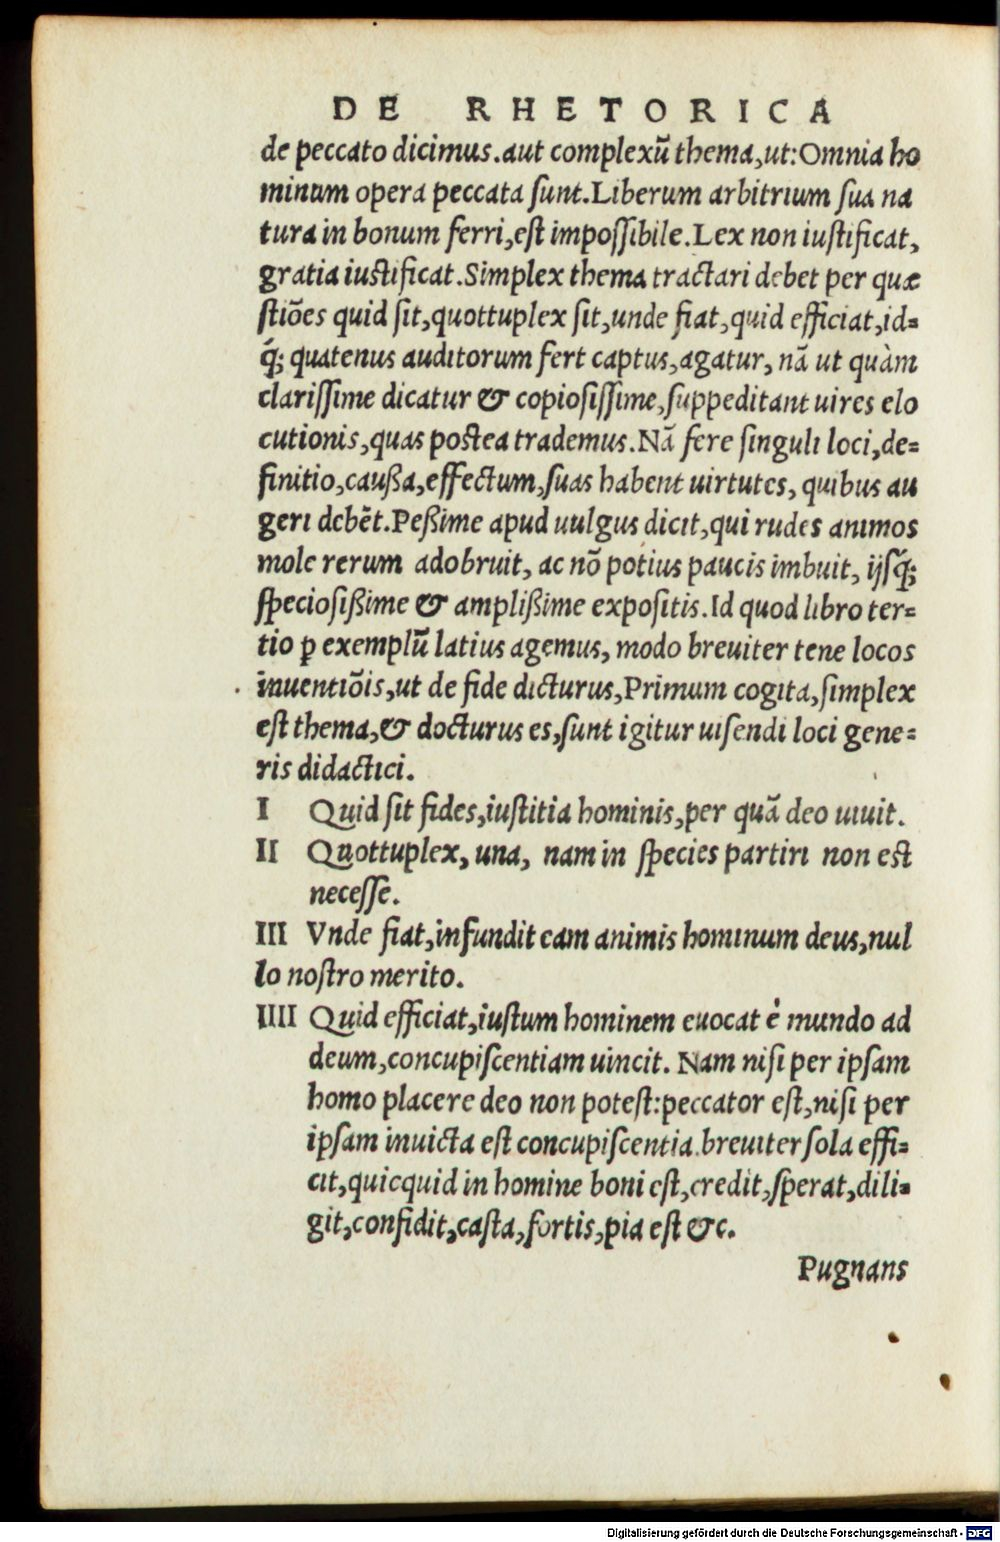 DE RHETORICA
de peccato dicimus.aut complexū thema,ut:Omnia ho
minum opera peccata sunt.Liberum arbitrium sua na
tura in bonum ferri,est impossibile.Lex non iustificat,
gratia iustificat.Simplex thema tractari debet per quæ
stiōes quid sit,quottuplex sit,unde fiat,quid efficiat,id-
q́; quatenus auditorum fert captus,agatur, nā ut quàm
clarissime dicatur & copiosissime,suppeditant uires elo
cutionis,quas postea trademus.Nā fere singuli loci,de-
finitio,caußa,effectum,suas habent uirtutes, quibus au
geri debēt.Peßime apud uulgus dicit,qui rudes animos
mole rerum adobruit, ac nō potius paucis imbuit, ijsq́;
speciosißime & amplißime expositis.Id quod libro ter-
tio ꝑ exemplū latius agemus, modo breuiter tene locos
inuentiōis,ut de fide dicturus,Primum cogita,simplex
est thema,& docturus es,sunt igitur uisendi loci gene-
ris didactici.
I Quid sit fides,iustitia hominis,per quā deo uiuit.
II Quottuplex, una, nam in species partiri non est
necesse.
III Vnde fiat,infundit eam animis hominum deus,nul
lo nostro merito.
IIII Quid efficiat,iustum hominem euocat è mundo ad
deum,concupiscentiam uincit. Nam nisi per ipsam
homo placere deo non potest:peccator est,nisi per
ipsam inuicta est concupiscentia.breuiter sola effi-
cit,quicquid in homine boni est,credit,sperat,dili-
git,confidit,casta,fortis,pia est &c.
Pugnans
Digitalisierung gefördert durch die Deutsche Forschungsgemeinschaft - DFG